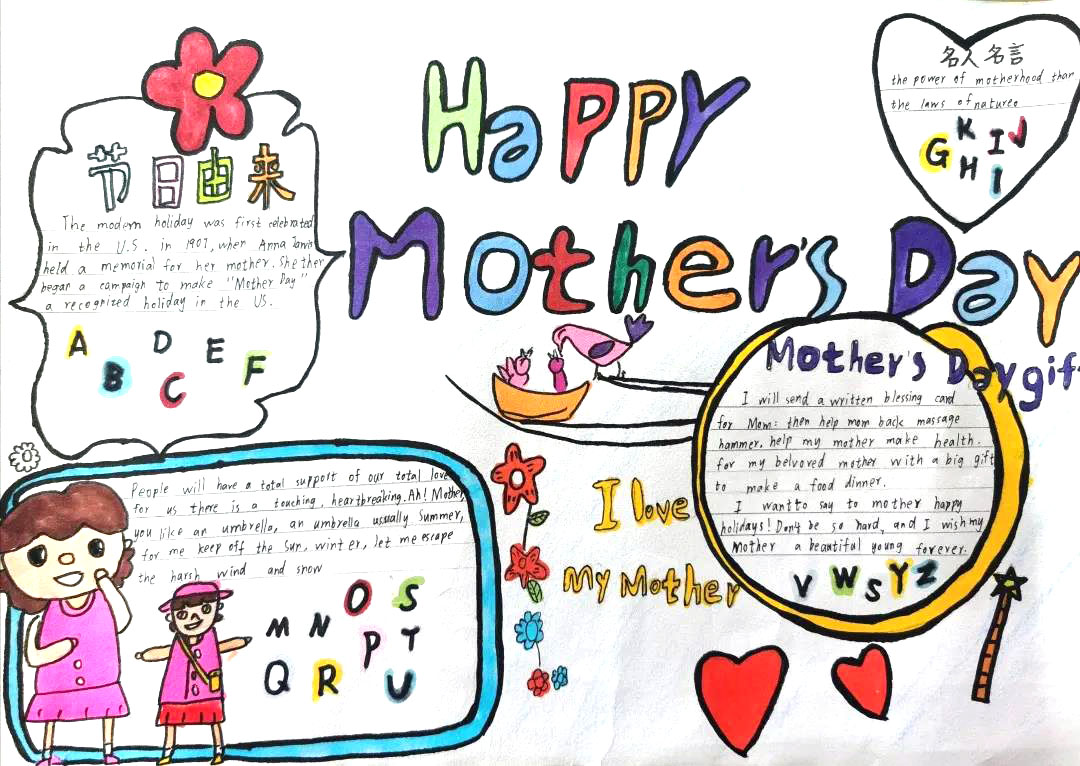 Happy
Mother's Day
节日由来
The modern holiday was first celebrated
in the U.S. in 1907, when Anna Jarvis
held a memorial for her mother. She ther
began a campaign to make "Mother Day"
a recognized holiday in the US.
A B C D E F
名人名言
the power of motherhood than
the laws of nature。
G K H I J
I
Mother's Day gif
I will send a written blessing card
for Mom: then help mom back massage
hammer. help my mother make health.
for my belvoved mother with a big gift
to make a food dinner.
I want to say to mother happy
holidays! Don't be so hard, and I wish my
Mother a beautiful young forever.
V W S Y Z
I love
My Mother
People will have a total support of our total love
for us there is a touching, heartbreaking. Ah! Mother,
you like an umbrella, an umbrella usually summer,
for me keep off the sun, winter, let me escape
the harsh wind and snow
M N O S
P T
Q R U